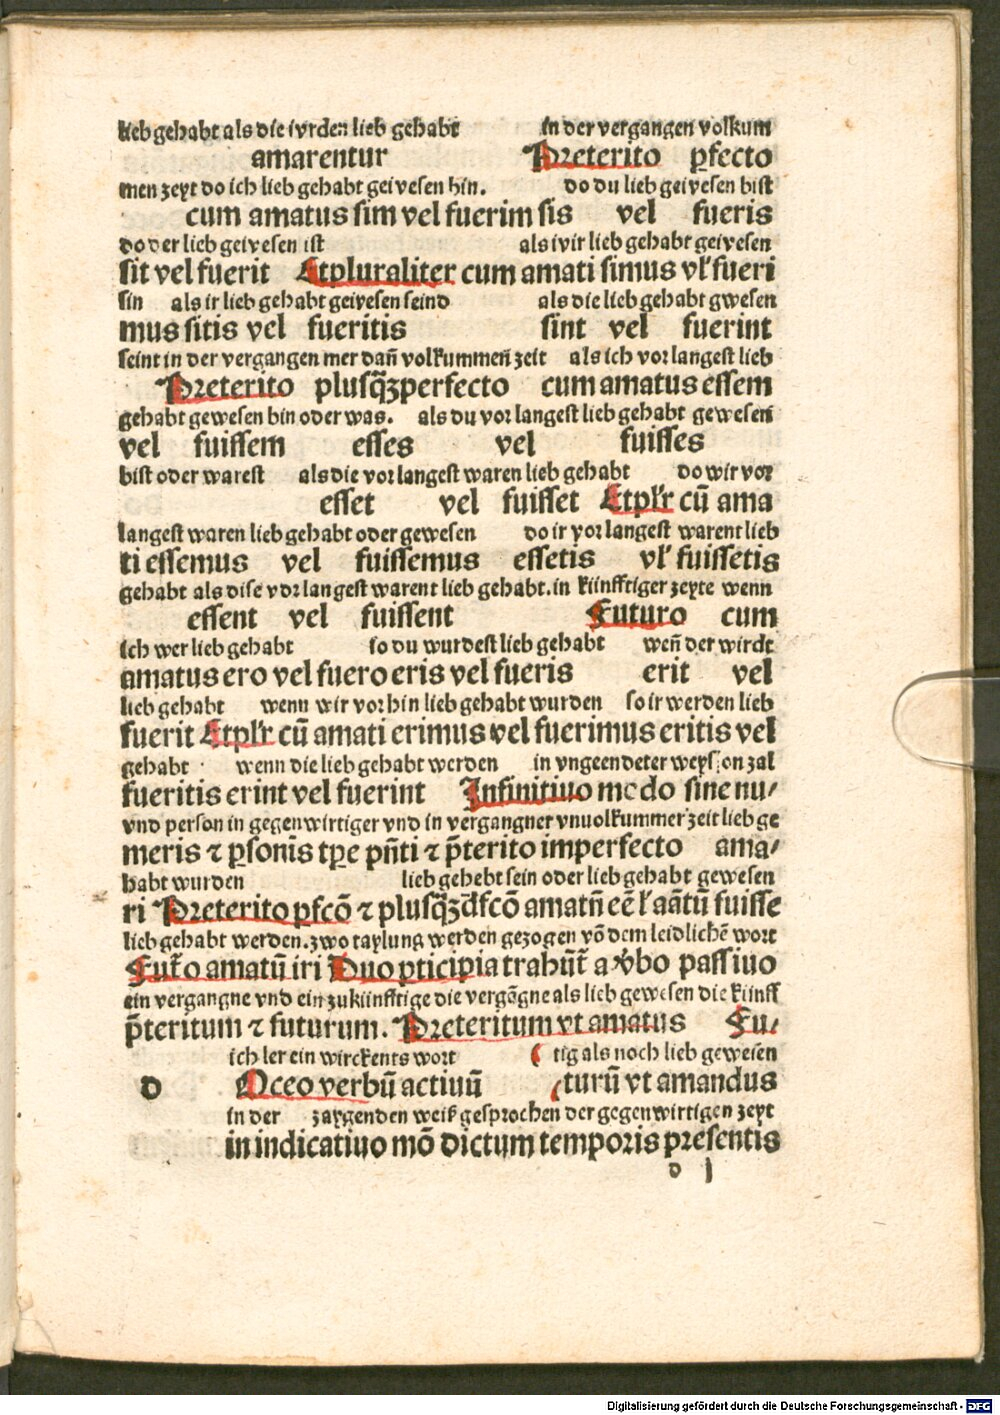 lieb gehabt als die ivrden lieb gehabt in der vergangen volkum
amarentur Preterito p̱fecto
men zeyt do ich lieb gehabt geivesen bin. do du lieb geivesen bist
cum amatus sim vel fuerim sis vel fueris
do der lieb geivesen ist als ivir lieb gehabt geivesen
sit vel fuerit Et pluraliter cum amati simus vl' fueri
sin als ir lieb gehabt geivesen seind als die lieb gehabt gwesen
mus sitis vel fueritis sint vel fuerint
seint in der vergangen mer dañ volkummeñ zeit als ich vor langest lieb
Preterito plusq̃ꝫperfecto cum amatus essem
gehabt gewesen bin oder was. als du vor langest lieb gehabt gewesen
vel fuissem esses vel fuisses
bist oder warest als die vor langest waren lieb gehabt do wir vor
esset vel fuisset Et pl'r cũ ama
langest waren lieb gehabt oder gewesen do ir vor langest warent lieb
ti essemus vel fuissemus essetis vl' fuissetis
gehabt als dise vor langest warent lieb gehabt. in kiinfftiger zeyte wenn
essent vel fuissent Futuro cum
ich wer lieb gehabt so du wurdest lieb gehabt weñ der wirdt
amatus ero vel fuero eris vel fueris erit vel
lieb gehabt wenn wir vorhin lieb gehabt wurden so ir werden lieb
fuerit Et pl'r cũ amati erimus vel fuerimus eritis vel
gehabt wenn die lieb gehabt werden in vngeendeter weys on zal
fueritis erint vel fuerint Infinitiuo modo sine nu/
vnd person in gegenwirtiger vnd in vergangner vnuolkummer zeit lieb ge
meris ⁊ ꝑsonis tp̃e pñti ⁊ p̃terito imperfecto ama/
habt wurden lieb gehebt sein oder lieb gehabt gewesen
ri Preterito ꝑfcõ ⁊ plusq̃ꝫꝑfcõ amatũ eẽ l' aãtũ fuisse
lieb gehabt werden. zwo taylung werden gezogen võ dem leidlichẽ wort
Fut̃o amatũ iri Duo ꝑticipia trahũt̃ a v̾bo passiuo
ein vergangne vnd ein zukiinfftige die vergãgne als lieb gewesen die kiinff
p̃teritum ⁊ futurum. Preteritum vt amatus Fu/
ich ler ein wirckents wort ( tig als noch lieb gewesen
d Oceo verbũ actiuũ (turũ vt amandus
in der zaygenden weiß gesprochen der gegenwirtigen zeyt
in indicatiuo mõ dictum temporis presentis
d j
Digitalisierung gefördert durch die Deutsche Forschungsgemeinschaft - DFG